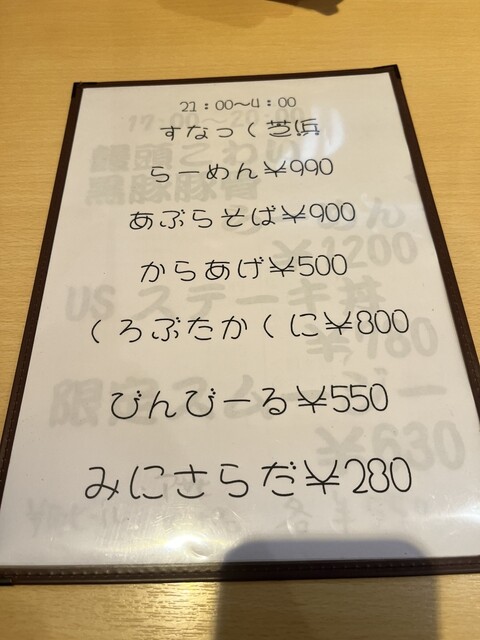 21：00～4：00
すなっく芝浜
らーめん￥990
あぶらそば￥900
からあげ￥500
くろぶたかくに￥800
びんびーる￥550
みにさらだ￥280